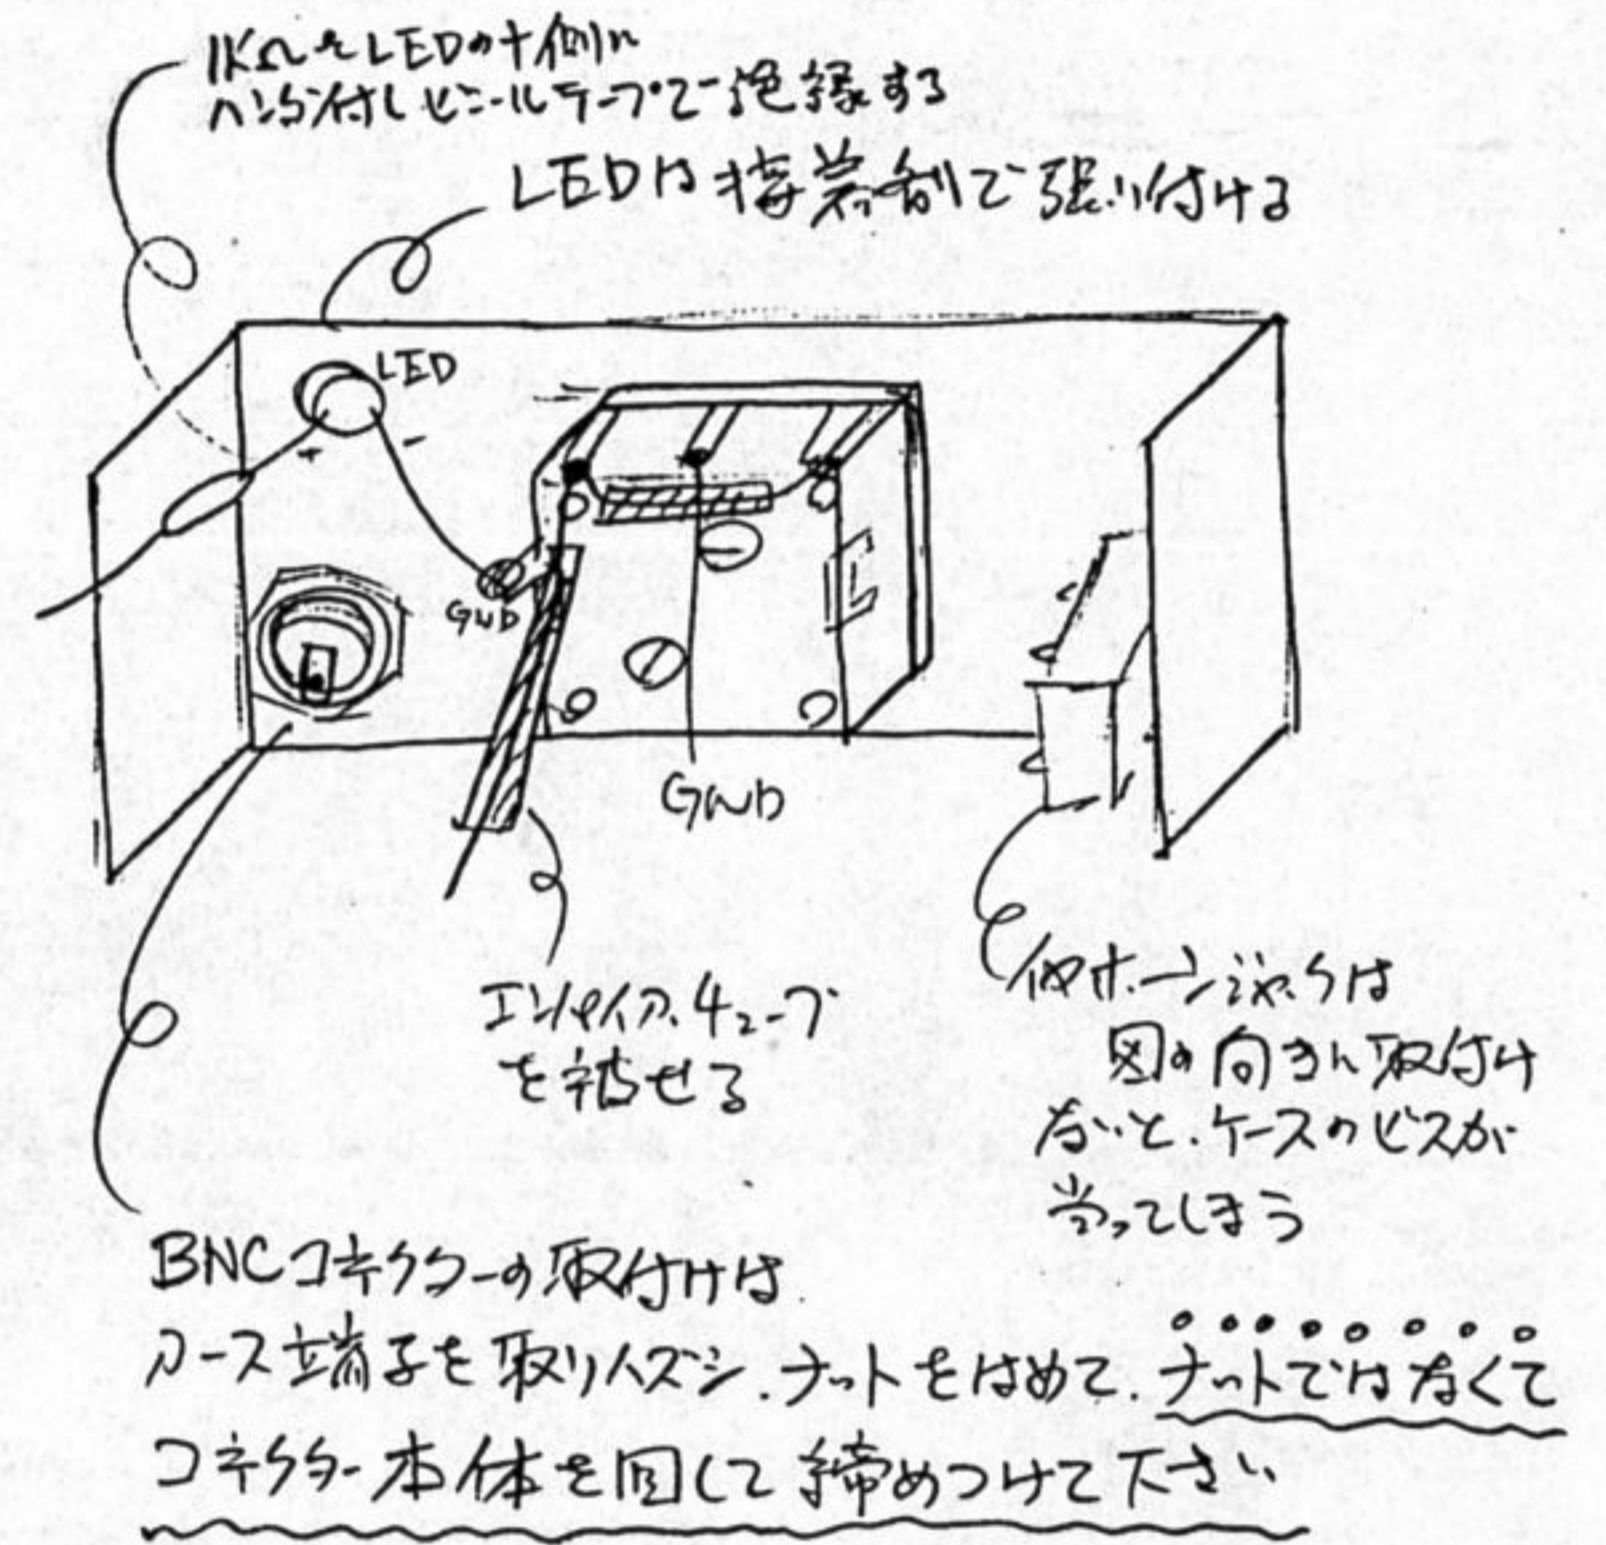 1KΩをLEDの+側に
ハンダ付しビニールテープで絶縁する
LEDは接着剤で張り付ける
LED
+
-
GND
GND
エンパイア.チューブ
を被せる
イヤホーンジャックは
図の向きに取付け
ないと、ケースのビスが
当ってしまう
BNCコネクターの取付けは
アース端子を取りハズシ、ナットをはめて、ナットではなくて
コネクター本体を回して締めつけて下さい